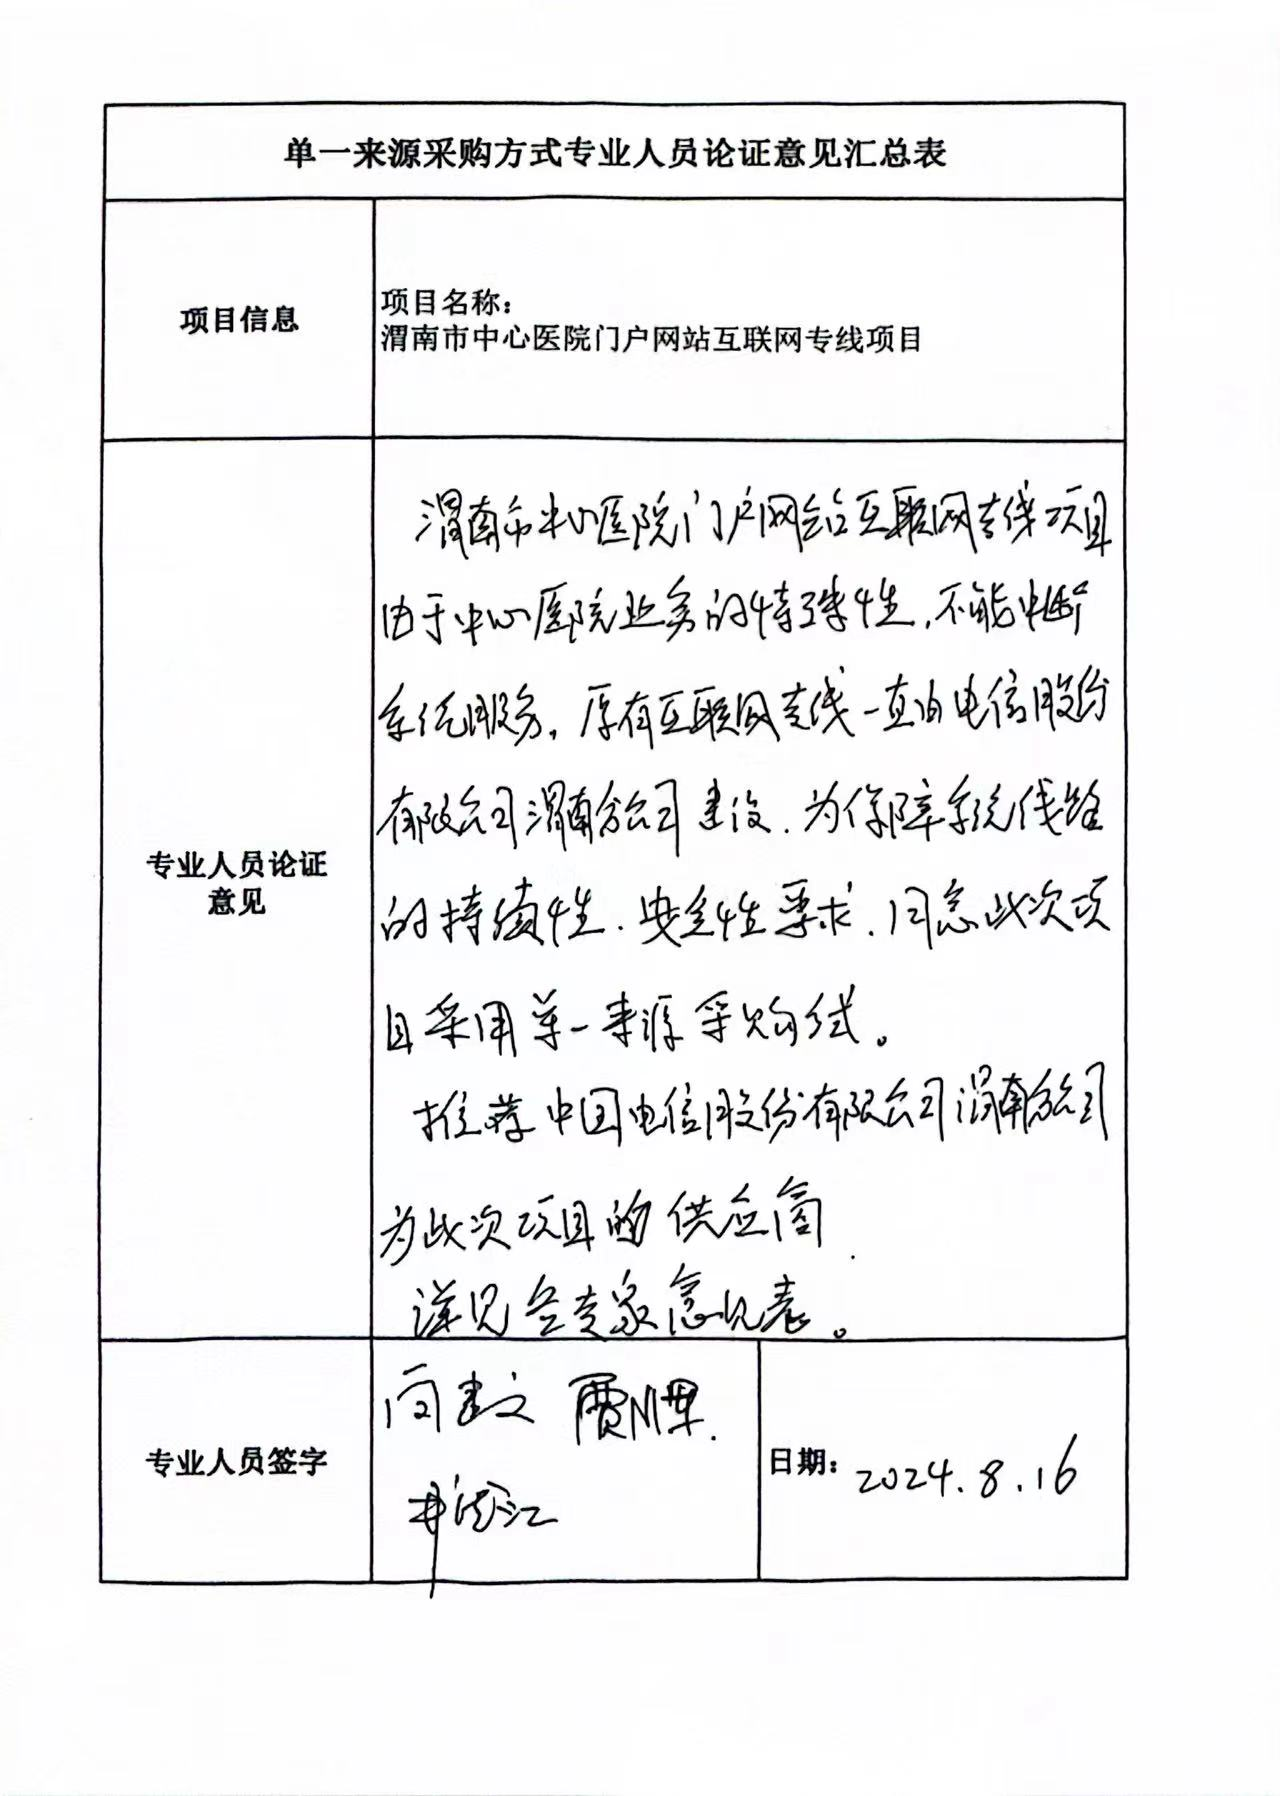 单一来源采购方式专业人员论证意见汇总表
项目信息
项目名称：
渭南市中心医院门户网站互联网专线项目
专业人员论证
意见
渭南市中心医院门户网站互联网专线项目
由于中心医院业务的特殊性，不能中断
系统服务。原有互联网专线一直由电信股份
有限公司渭南分公司建设．为保障系统线路
的持续性．安全性要求．同意此次项
目采用单一来源采购方式。
推荐中国电信股份有限公司渭南分公司
为此次项目的供应商．
详见各专家意见表。
专业人员签字
建文
江
日期：
2024.8.16